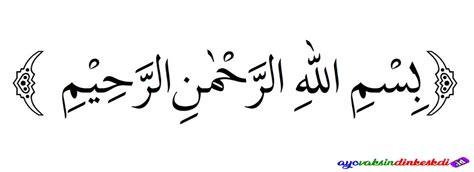 ﴿ بِسْمِ اللهِ الرَّحْمٰنِ الرَّحِيْمِ ﴾
ayovaksindinkeskdi.id